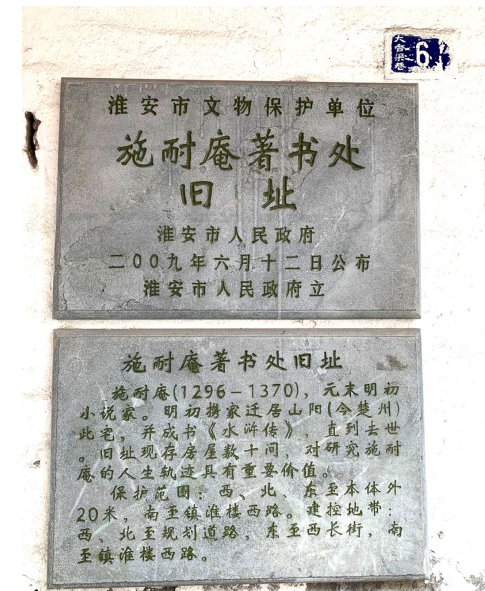 大香渠巷
6
淮安市文物保护单位
施耐庵著书处
旧 址
淮安市人民政府
二00九年六月十二日公布
淮安市人民政府立
施耐庵著书处旧址
施耐庵(1296－1370)，元末明初
小说家。明初携家迁居山阳(今楚州)
此宅，并成书《水浒传》，直到去世
。旧址现存房屋数十间，对研究施耐
庵的人生轨迹具有重要价值。
保护范围：西、北、东至本体外
20米，南至镇淮楼西路。建控地带：
西、北至规划道路，东至西长街，南
至镇淮楼西路。